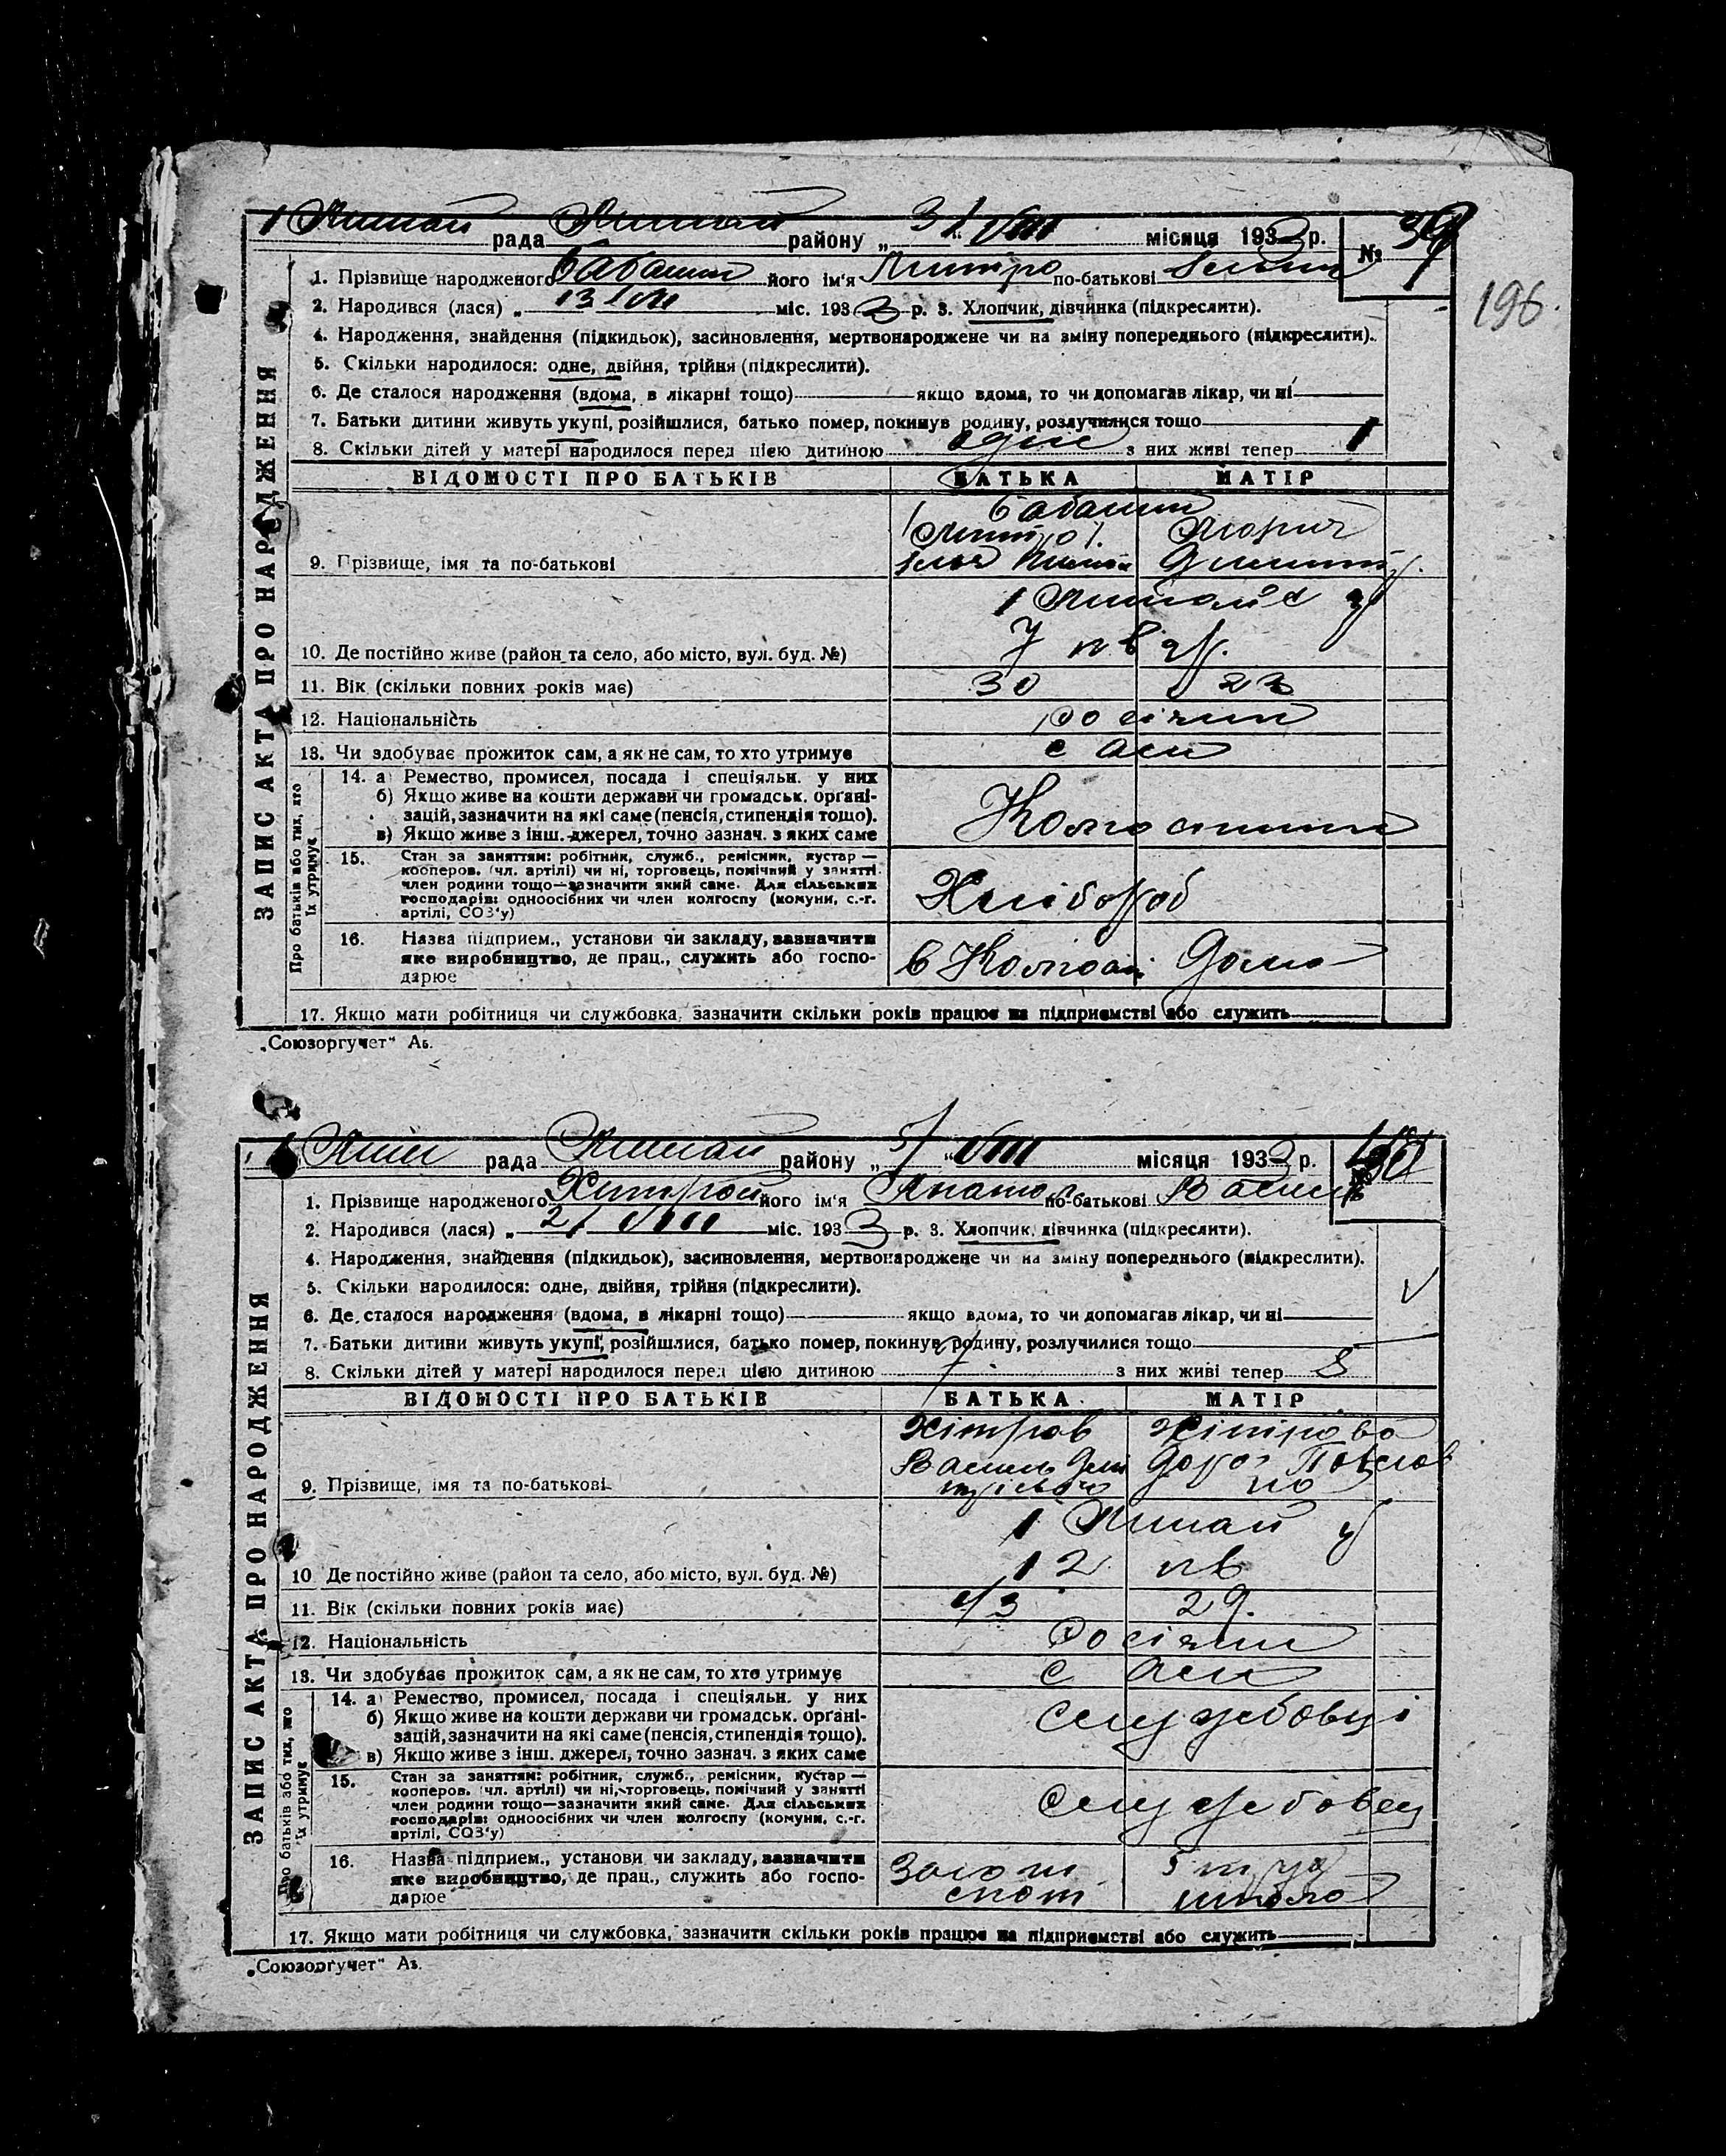 рада району „ 3/VIII " місяця 1933 р. № 39
196.
1. Прізвище народженого його ім'я Дмитро по-батькові
2. Народився (лася) „ 13/VII міс. 1933 р. 3. Хлопчик, дівчинка (підкреслити).
4. Народження, знайдення (підкидьок), засиновлення, мертвонароджене чи на зміну попереднього (підкреслити).
5. Скільки народилося: одне, двійня, трійня (підкреслити).
6. Де сталося народження (вдома, в лікарні тощо) якщо вдома, то чи допомагав лікар, чи ні
7. Батьки дитини живуть укупі, розійшлися, батько помер, покинув родину, розлучилися тощо
8. Скільки дітей у матері народилося перед цією дитиною одне з них живі тепер 1
ЗАПИС АКТА ПРО НАРОДЖЕННЯ
ВІДОМОСТІ ПРО БАТЬКІВ БАТЬКА МАТІР
9. Прізвище, імя та по-батькові
10. Де постійно живе (район та село, або місто, вул. буд. №)
11. Вік (скільки повних років має) 30 23
12. Національність росіяни
13. Чи здобуває прожиток сам, а як не сам, то хто утримує сами
Про батьків або тих, хто їх утримує
14. а) Ремество, промисел, посада і спеціяльн. у них
б) Якщо живе на кошти держави чи громадськ. орґані-
зацій, зазначити на які саме (пенсія, стипендія тощо).
в) Якщо живе з інш. джерел, точно зазнач. з яких саме
15. Стан за заняттям: робітник, служб., ремісник, кустар —
кооперов. (чл. артілі) чи ні, торговець, помічний у занятті
член родини тощо—зазначити який саме. Для сільських
господарів: одноосібних чи член колгоспу (комуни, с.-г.
артілі, СОЗ'у)
Хлібороб
16. Назва підприєм., установи чи закладу, зазначити
яке виробництво, де прац., служить або госпо-
дарює
в Колгоспі Дома
17. Якщо мати робітниця чи службовка, зазначити скільки років працює на підприємстві або служить
„Союзоргучет" Аз.
рада району „ 5/VIII " місяця 1933 р.
1. Прізвище народженого його ім'я Анатол по-батькові Василь
2. Народився (лася) „ 2/VIII міс. 1933 р. 3. Хлопчик, дівчинка (підкреслити).
4. Народження, знайдення (підкидьок), засиновлення, мертвонароджене чи на зміну попереднього (підкреслити).
5. Скільки народилося: одне, двійня, трійня (підкреслити).
6. Де сталося народження (вдома, в лікарні тощо) якщо вдома, то чи допомагав лікар, чи ні
7. Батьки дитини живуть укупі, розійшлися, батько помер, покинув родину, розлучилися тощо
8. Скільки дітей у матері народилося перед цією дитиною з них живі тепер
ЗАПИС АКТА ПРО НАРОДЖЕННЯ
ВІДОМОСТІ ПРО БАТЬКІВ БАТЬКА МАТІР
Хітров Хітрова
Василь
9. Прізвище, імя та по-батькові
10. Де постійно живе (район та село, або місто, вул. буд. №)
11. Вік (скільки повних років має) 43 29.
12. Національність росіяни
13. Чи здобуває прожиток сам, а як не сам, то хто утримує сами
Про батьків або тих, хто їх утримує
14. а) Ремество, промисел, посада і спеціяльн. у них
б) Якщо живе на кошти держави чи громадськ. орґані-
зацій, зазначити на які саме (пенсія, стипендія тощо).
в) Якщо живе з інш. джерел, точно зазнач. з яких саме
службовці
15. Стан за заняттям: робітник, служб., ремісник, кустар —
кооперов. (чл. артілі) чи ні, торговець, помічний у занятті
член родини тощо—зазначити який саме. Для сільських
господарів: одноосібних чи член колгоспу (комуни, с.-г.
артілі, СОЗ'у)
службовец
16. Назва підприєм., установи чи закладу, зазначити
яке виробництво, де прац., служить або госпо-
дарює
школа
17. Якщо мати робітниця чи службовка, зазначити скільки років працює на підприємстві або служить
„Союзоргучет" Аз.